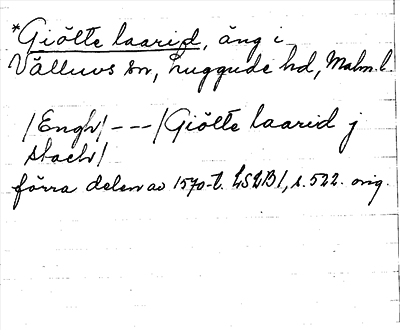 *Giölte laarid, äng i
Välluvs sn, Luggude hd, Malm. l.
/Engh/ --- / Giölte laarid j
stach/
förra delen av 1570-t. LSLB1, s. 522. orig.